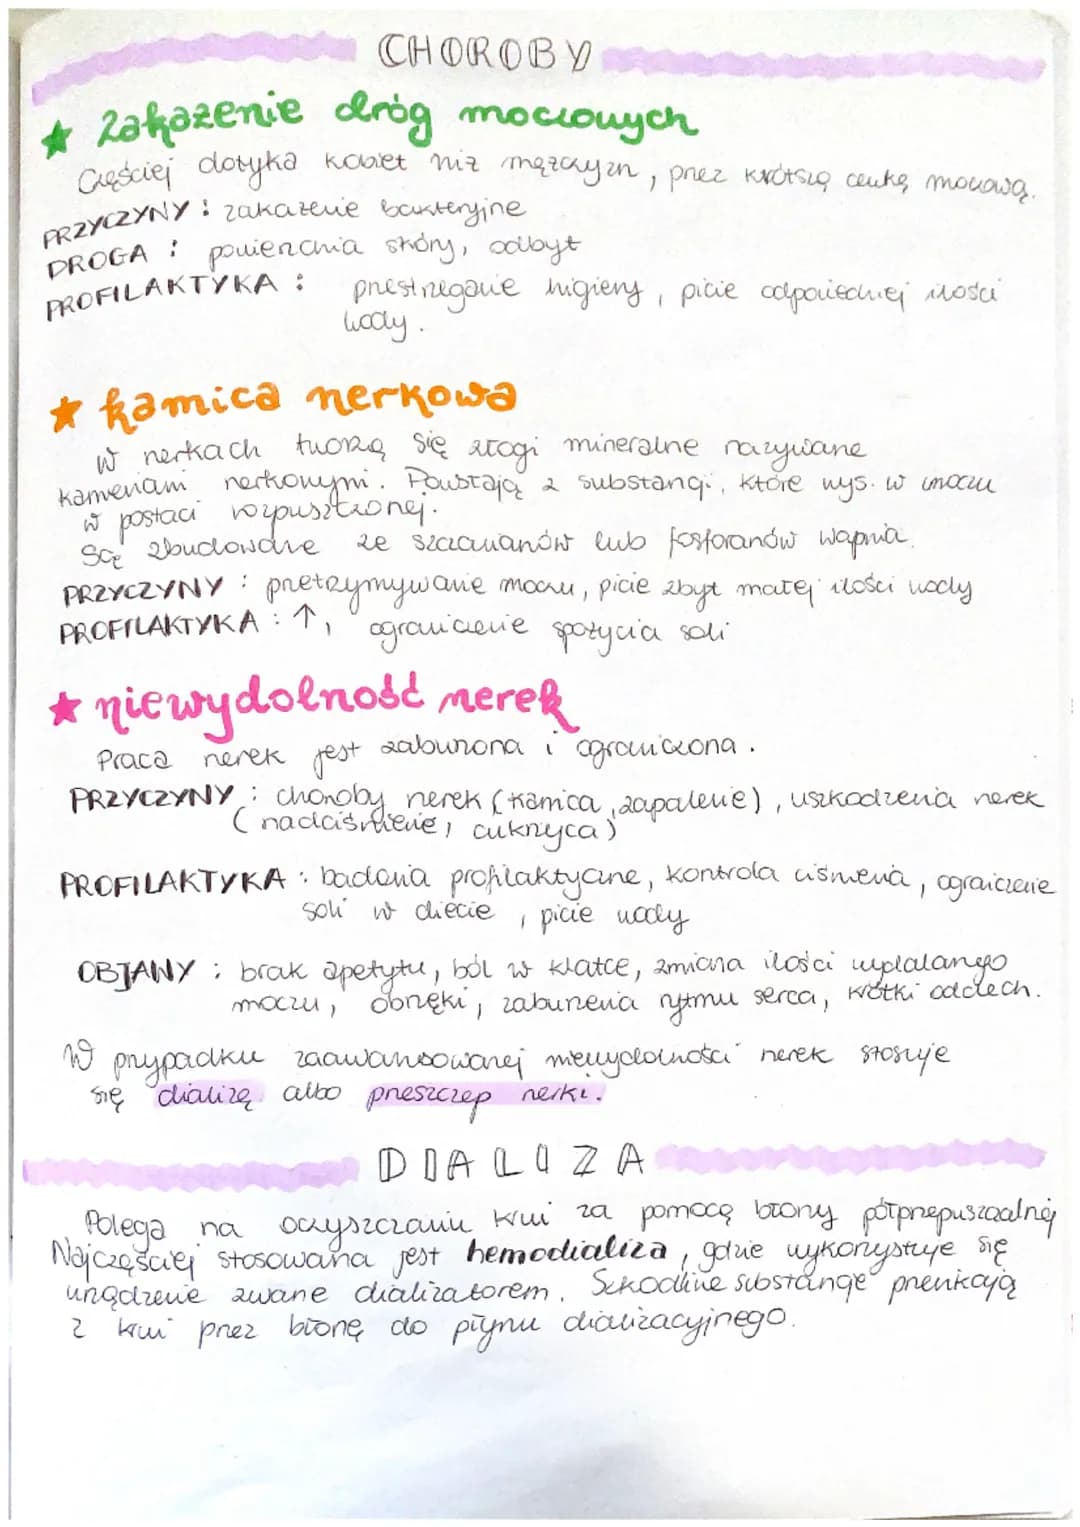 CHOROBY
★ Zakażenie dróg moczowych
Częściej dotyka kobiet niż mężczyzn, przez krótszą cewkę moczową.
PRZYCZYNY: zakażenie bakteryjne
DROGA: powierzchnia skóry, odbyt
PROFILAKTYKA: przestrzeganie higieny, picie odpowiedniej ilości
wody.
★ kamica nerkowa
W nerkach tworzą się złogi mineralne nazywane
kamieniami nerkowymi. Powstają z substancji, które wys. w moczu
w postaci rozpuszczonej.
Są zbudowane ze szczawianów lub fosforanów wapnia.
PRZYCZYNY: przetrzymywanie moczu, picie zbyt małej ilości wody
PROFILAKTYKA: ↑, ograniczenie spożycia soli
★ niewydolność nerek
Praca nerek jest zaburzona i ograniczona.
PRZYCZYNY: choroby nerek (kamica, zapalenie), uszkodzenia nerek
(nadciśnienie, cukrzyca)
PROFILAKTYKA: badania profilaktyczne, kontrola ciśnienia, ograiczenie
soli w diecie, picie wody
OBJAWY: brak apetytu, ból w klatce, zmiana ilości wydalanego
moczu, obrzęki, zaburzenia rytmu serca, krótki oddech.
W przypadku zaawansowanej niewydolności nerek stosuje
się dializę albo przeszczep nerki.
DIALIZA
Polega na oczyszczaniu krwi za pomocą błony półprzepuszczalnej
Najczęściej stosowana jest hemodializa, gdzie wykorzystuje się
urządzenie zwane dializatorem. Szkodliwe substancje przenikają
z krwi przez błonę do płynu dializacyjnego.